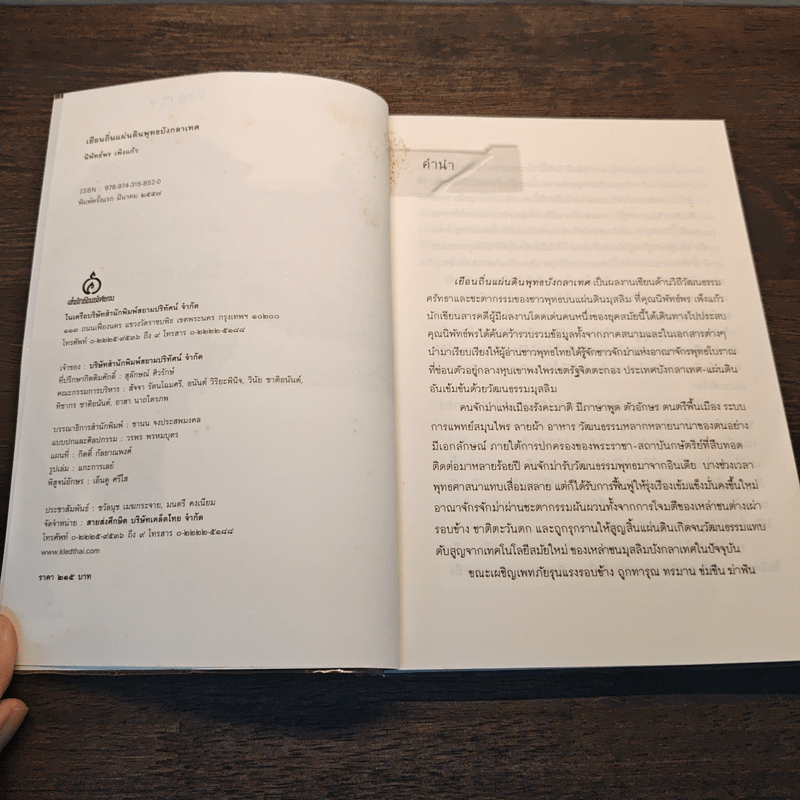 เยือนถิ่นแผ่นดินพุทธบังกลาเทศ
นิพัทธ์พร เพ็งแก้ว
ISBN : 978-974-315-852-0
พิมพ์ครั้งแรก มีนาคม ๒๕๕๘
ในเครือบริษัทสำนักพิมพ์สยามปริทัศน์ จำกัด
๑๑๓ ถนนเฟื่องนคร แขวงวัดราชบพิธ เขตพระนคร กรุงเทพฯ ๑๐๒๐๐
โทรศัพท์ ๐-๒๒๒๕-๙๕๓๖ ถึง ๙ โทรสาร ๐-๒๒๒๒-๕๑๘๘
เจ้าของ : บริษัทสำนักพิมพ์สยามปริทัศน์ จำกัด
ที่ปรึกษากิตติมศักดิ์ : สุลักษณ์ ศิวรักษ์
คณะกรรมการบริหาร : สัจจา รัตนโฉมศรี, อนันต์ วิริยะพินิจ, วินัย ชาติอนันต์,
ทิชากร ชาติอนันต์, อาสา นาถไตรภพ
บรรณาธิการสำนักพิมพ์ : ชานน จงประสพมงคล
แบบปกและศิลปกรรม : วรพร พรหมบุตร
แผนที่ : กิตติ์ กัลยาณพงศ์
รูปเล่ม : แกะการเลย์
พิสูจน์อักษร : เอ็นดู ศรีใส
ประชาสัมพันธ์ : ขวัลนุช เมฆกระจาย, มนตรี คงเนียม
จัดจำหน่าย : สายส่งศึกษิต บริษัทเคล็ดไทย จำกัด
โทรศัพท์ ๐-๒๒๒๕-๙๕๓๖ ถึง ๙ โทรสาร ๐-๒๒๒๒-๕๑๘๘
www.kledthai.com
ราคา ๒๑๕ บาท
คำนำ
เยือนถิ่นแผ่นดินพุทธบังกลาเทศ เป็นผลงานเขียนด้านวิถีวัฒนธรรม
ศรัทธาและชะตากรรมของชาวพุทธบนแผ่นดินมุสลิม ที่คุณนิพัทธ์พร เพ็งแก้ว
นักเขียนสารคดีผู้มีผลงานโดดเด่นคนหนึ่งของยุคสมัยนี้ได้เดินทางไปประสบ
คุณนิพัทธ์พรได้ค้นคว้ารวบรวมข้อมูลทั้งจากภาคสนามและในเอกสารต่างๆ
นำมาเรียบเรียงให้ผู้อ่านชาวพุทธไทยได้รู้จักชาวจักม่าแห่งอาณาจักรพุทธโบราณ
ที่ซ่อนตัวอยู่กลางหุบเขาพงไพรเขตรัฐจิตตะกอง ประเทศบังกลาเทศ-แผ่นดิน
อันเข้มข้นด้วยวัฒนธรรมมุสลิม
คนจักม่าแห่งเมืองรังคะมาติ มีภาษาพูด ตัวอักษร ดนตรีพื้นเมือง ระบบ
การแพทย์สมุนไพร ลายผ้า อาหาร วัฒนธรรมหลากหลายนานาของตนอย่าง
มีเอกลักษณ์ ภายใต้การปกครองของพระราชา-สถาบันกษัตริย์ที่สืบทอด
ติดต่อมาหลายร้อยปี คนจักม่ารับวัฒนธรรมพุทธมาจากอินเดีย บางช่วงเวลา
พุทธศาสนาแทบเสื่อมสลาย แต่ก็ได้รับการฟื้นฟูให้รุ่งเรืองเข้มแข็งมั่นคงขึ้นใหม่
อาณาจักรจักม่าผ่านชะตากรรมผันผวนทั้งจากการโจมตีของเหล่าชนต่างเผ่า
รอบข้าง ชาติตะวันตก และถูกรุกรานให้สูญสิ้นแผ่นดินเกิดจนวัฒนธรรมแทบ
ดับสูญจากเทคโนโลยีสมัยใหม่ ของเหล่าชนมุสลิมบังกลาเทศในปัจจุบัน
ขณะเผชิญเพทภัยรุนแรงรอบข้าง ถูกทารุณ ทรมาน ข่มขืน ฆ่าฟัน